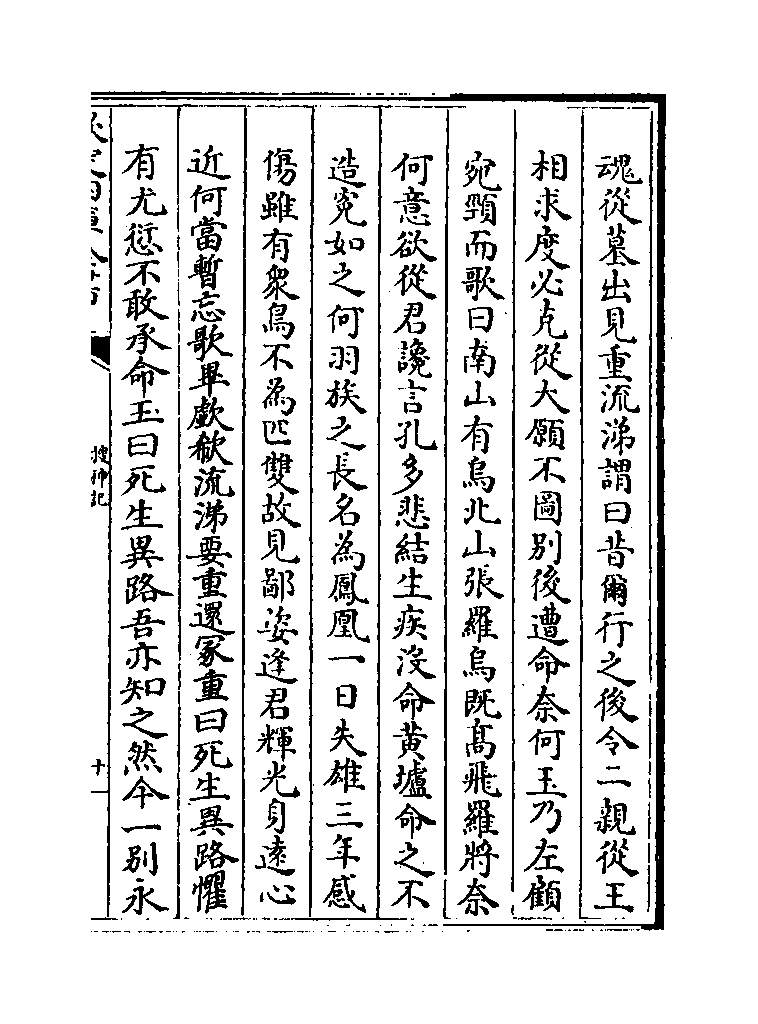 魂從墓出見重流涕謂曰昔爾行之後令二親從王
相求度必克從大願不圖别後遭命奈何玉乃左顧
宛頸而歌曰南山有烏北山張羅烏既髙飛羅將奈
何意欲從君讒言孔多悲結生疾沒命黄壚命之不
造寃如之何羽族之長名為鳳凰一日失雄三年感
傷雖有衆鳥不為匹雙故見鄙姿逢君輝光身遠心
近何當暫忘歌畢歔欷流涕要重還冢重曰死生異路懼
有尤愆不敢承命玉曰死生異路吾亦知之然今一别永
搜神記
十一